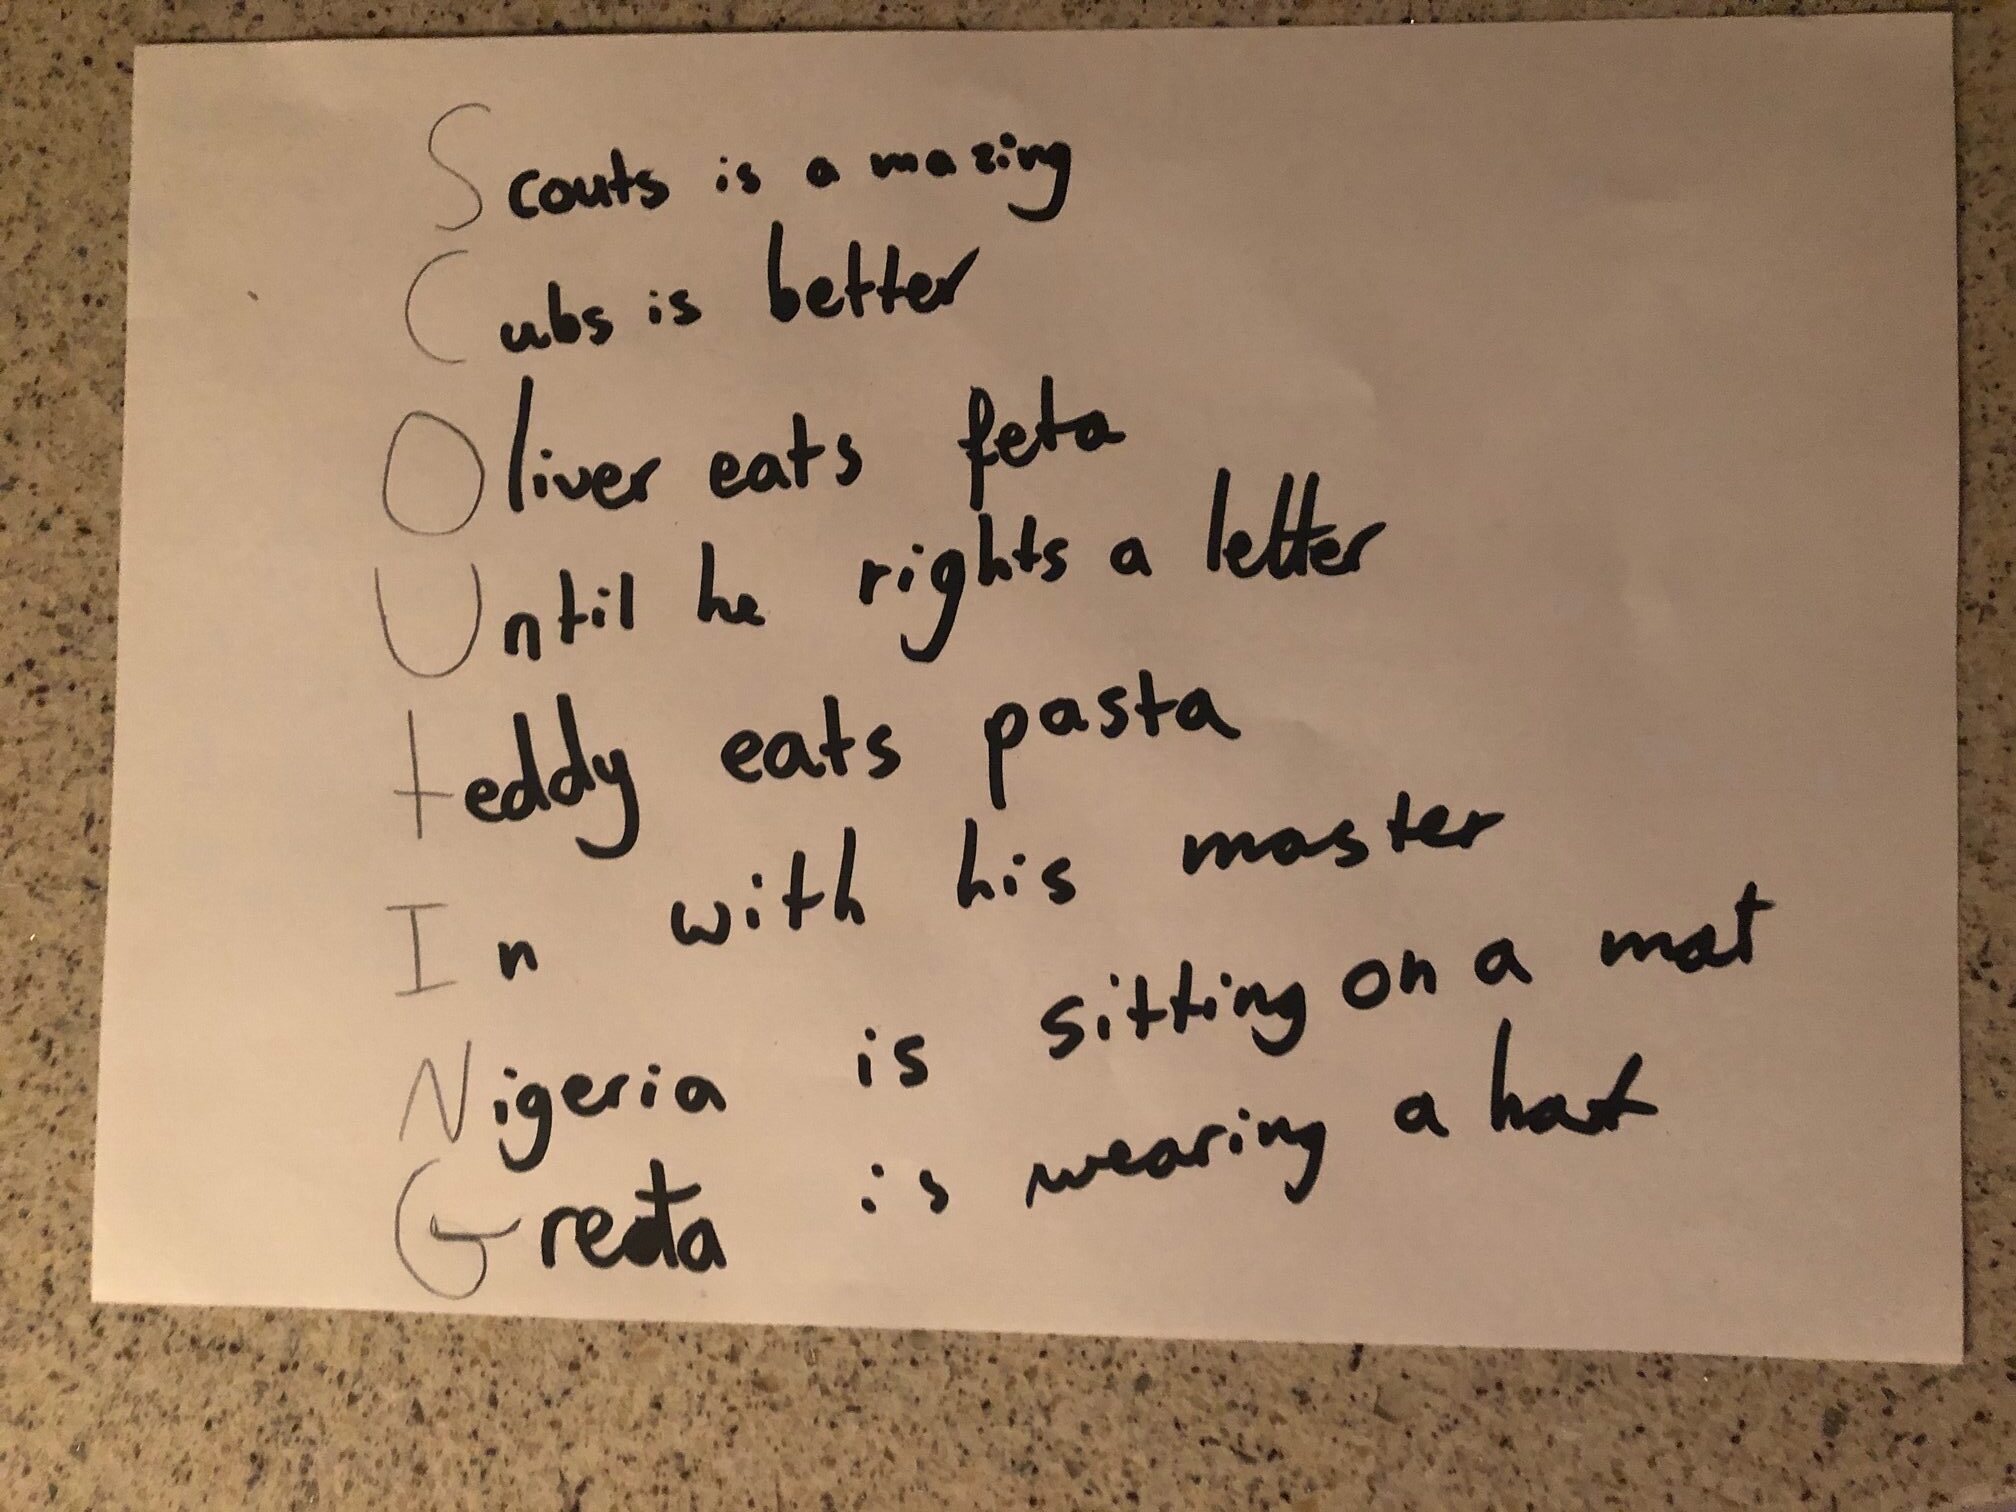 Scouts is a mazing
Cubs is better
Oliver eats feta
Until he rights a letter
teddy eats pasta
In with his master
Nigeria is sitting on a mat
Greta is wearing a hat